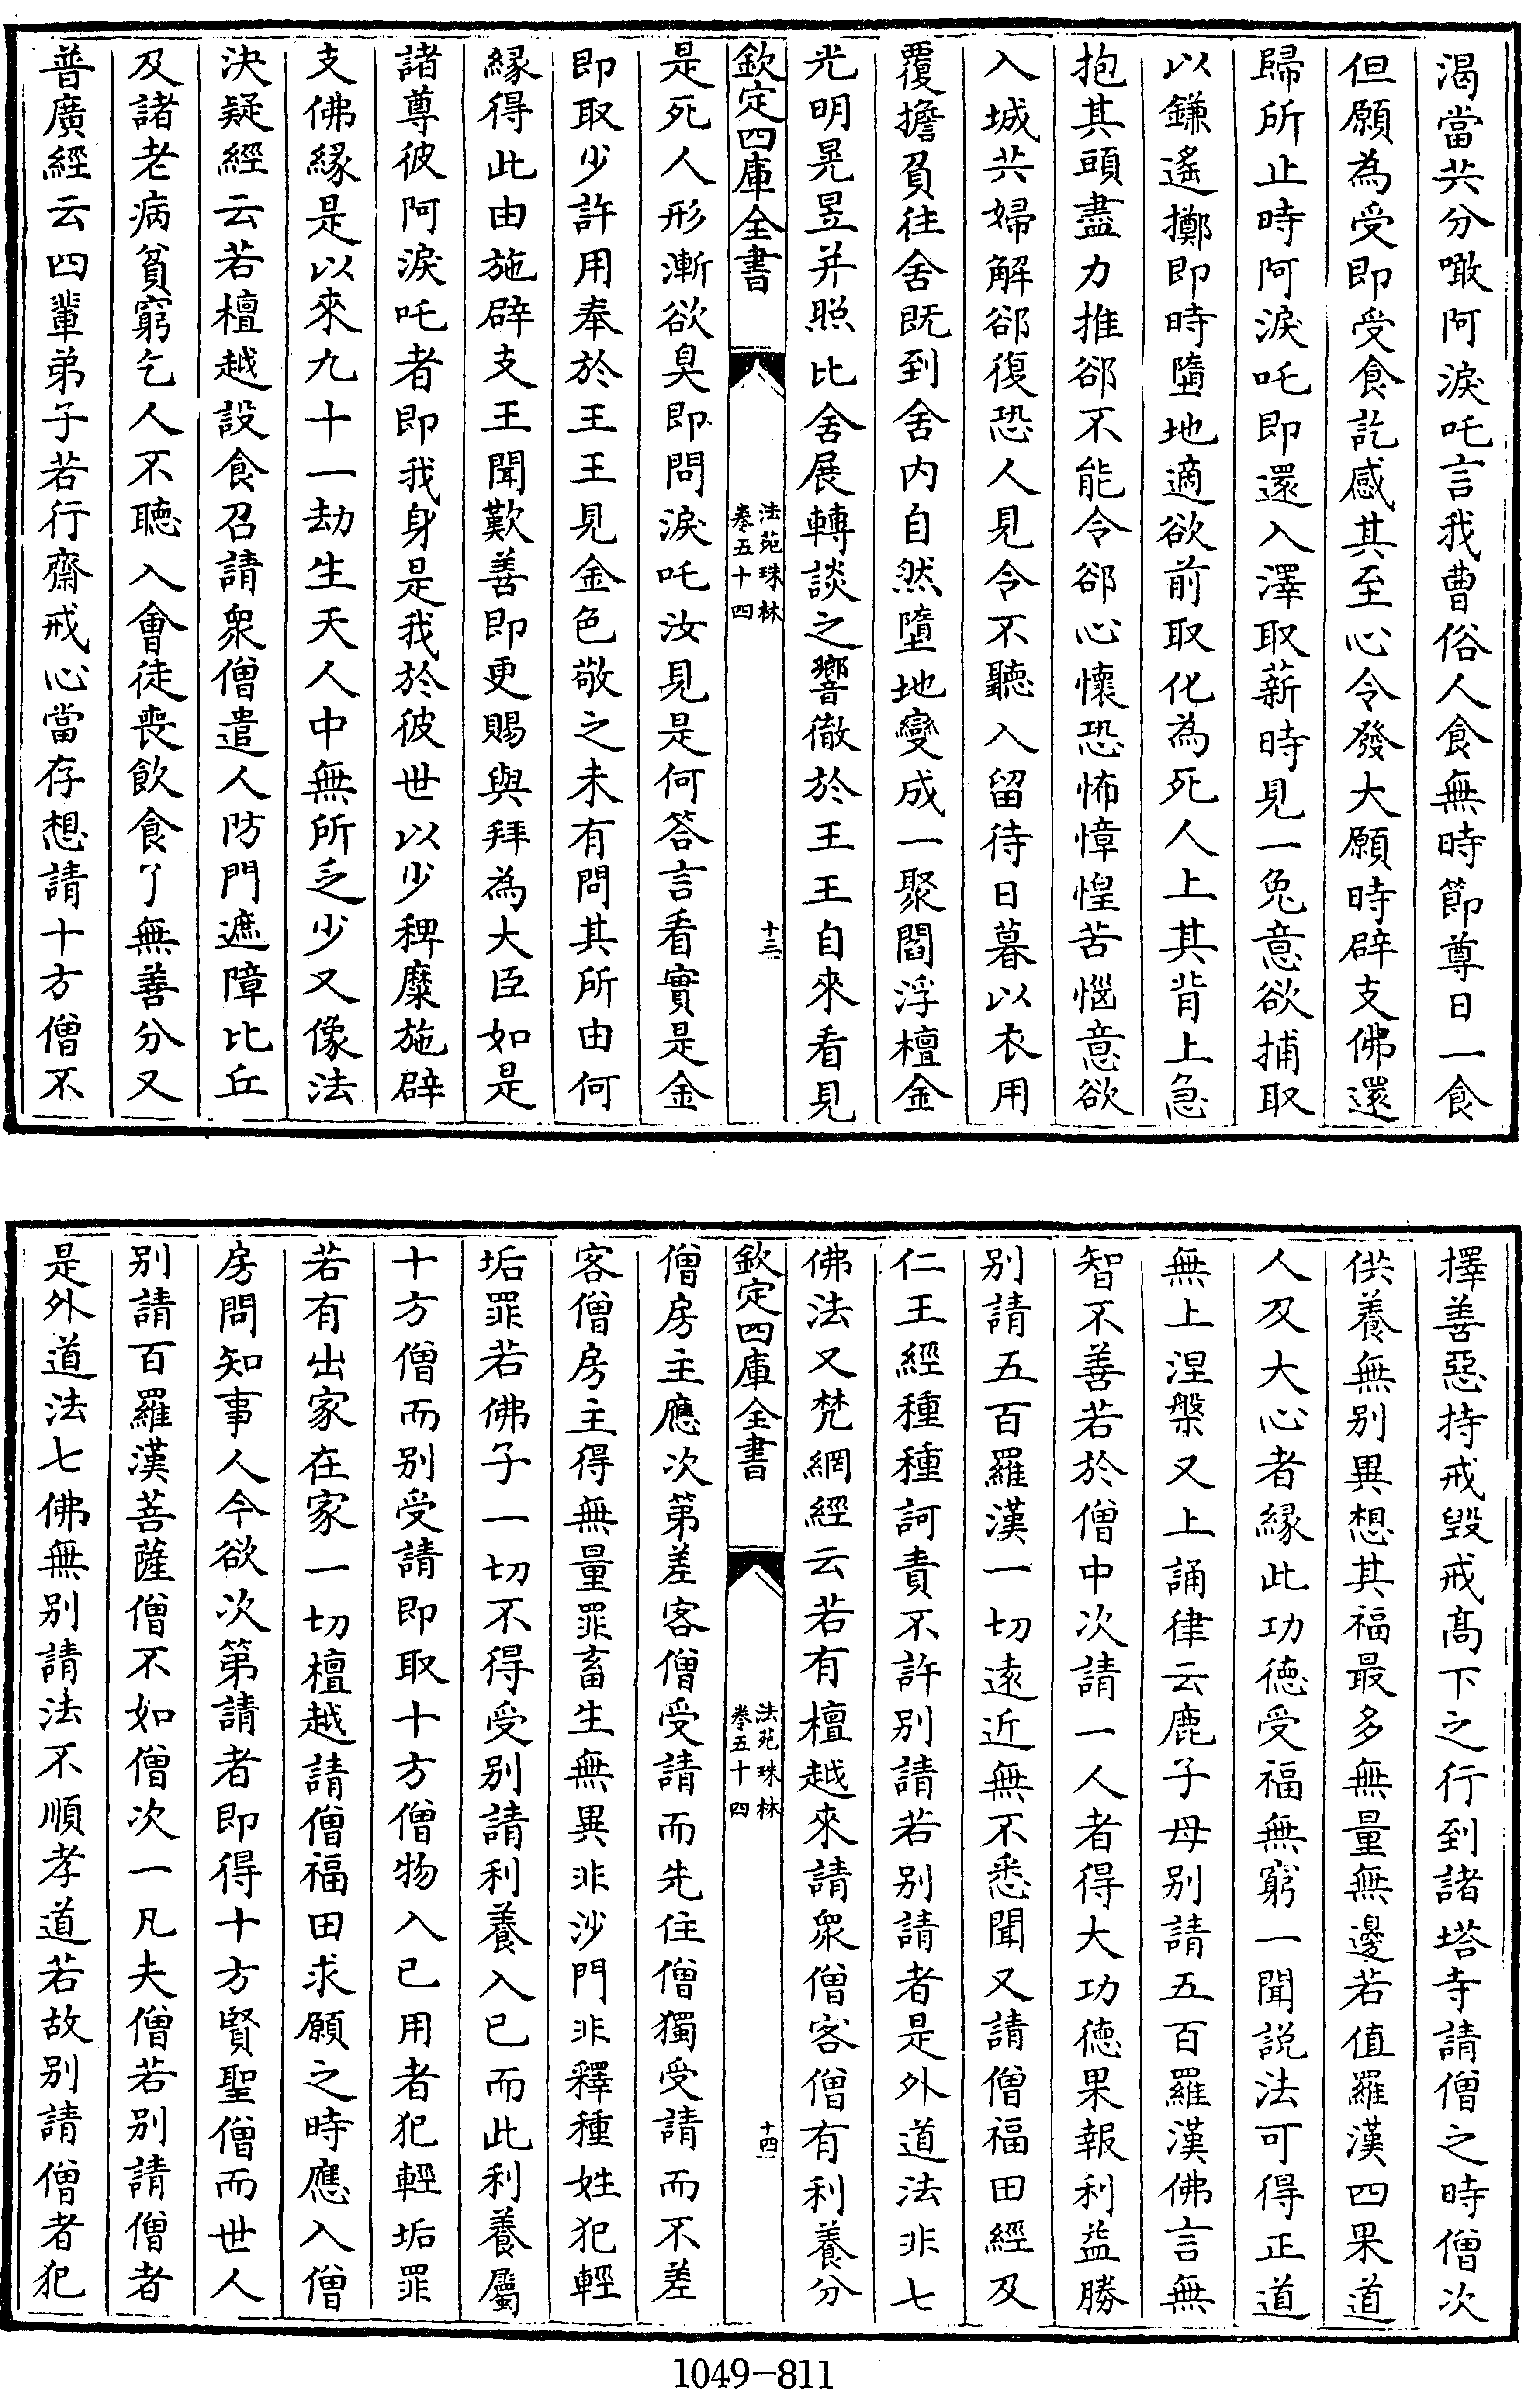 渴當共分噉阿淚吒言我曹俗人食無時節尊日一食
但願為受即受食訖感其至心令發大願時辟支佛還
歸所止時阿淚吒即還入澤取薪時見一兔意欲捕取
以鎌遙擲即時墮地適欲前取化為死人上其背上急
抱其頭盡力推郤不能令郤心懷恐怖慞惶苦惱意欲
入城共婦解郤復恐人見令不聽入留待日暮以衣用
覆擔負往舍既到舍内自然墮地變成一聚閻浮檀金
光明晃昱并照比舍展轉談之響徹於王王自來看見
欽定四庫全書
法苑珠林
卷五十四
十三
是死人形漸欲臭即問淚吒汝見是何答言看實是金
即取少許用奉於王王見金色敬之未有問其所由何
縁得此由施辟支王聞歎善即更賜與拜為大臣如是
諸尊彼阿淚吒者即我身是我於彼世以少稗糜施辟
支佛縁是以來九十一劫生天人中無所乏少又像法
決疑經云若檀越設食召請衆僧遣人防門遮障比丘
及諸老病貧窮乞人不聽入會徒喪飲食了無善分又
普廣經云四輩弟子若行齋戒心當存想請十方僧不
擇善惡持戒毀戒髙下之行到諸塔寺請僧之時僧次
供養無别異想其福最多無量無邊若值羅漢四果道
人及大心者縁此功徳受福無窮一聞説法可得正道
無上涅槃又上誦律云鹿子母别請五百羅漢佛言無
智不善若於僧中次請一人者得大功徳果報利益勝
别請五百羅漢一切逺近無不悉聞又請僧福田經及
仁王經種種訶責不許别請若别請者是外道法非七
佛法又梵網經云若有檀越來請衆僧客僧有利養分
欽定四庫全書
法苑珠林
卷五十四
十四
僧房主應次第差客僧受請而先住僧獨受請而不差
客僧房主得無量罪畜生無異非沙門非釋種姓犯輕
垢罪若佛子一切不得受别請利養入已而此利養屬
十方僧而别受請即取十方僧物入已用者犯輕垢罪
若有出家在家一切檀越請僧福田求願之時應入僧
房問知事人今欲次第請者即得十方賢聖僧而世人
别請百羅漢菩薩僧不如僧次一凡夫僧若别請僧者
是外道法七佛無别請法不順孝道若故别請僧者犯
1049-811